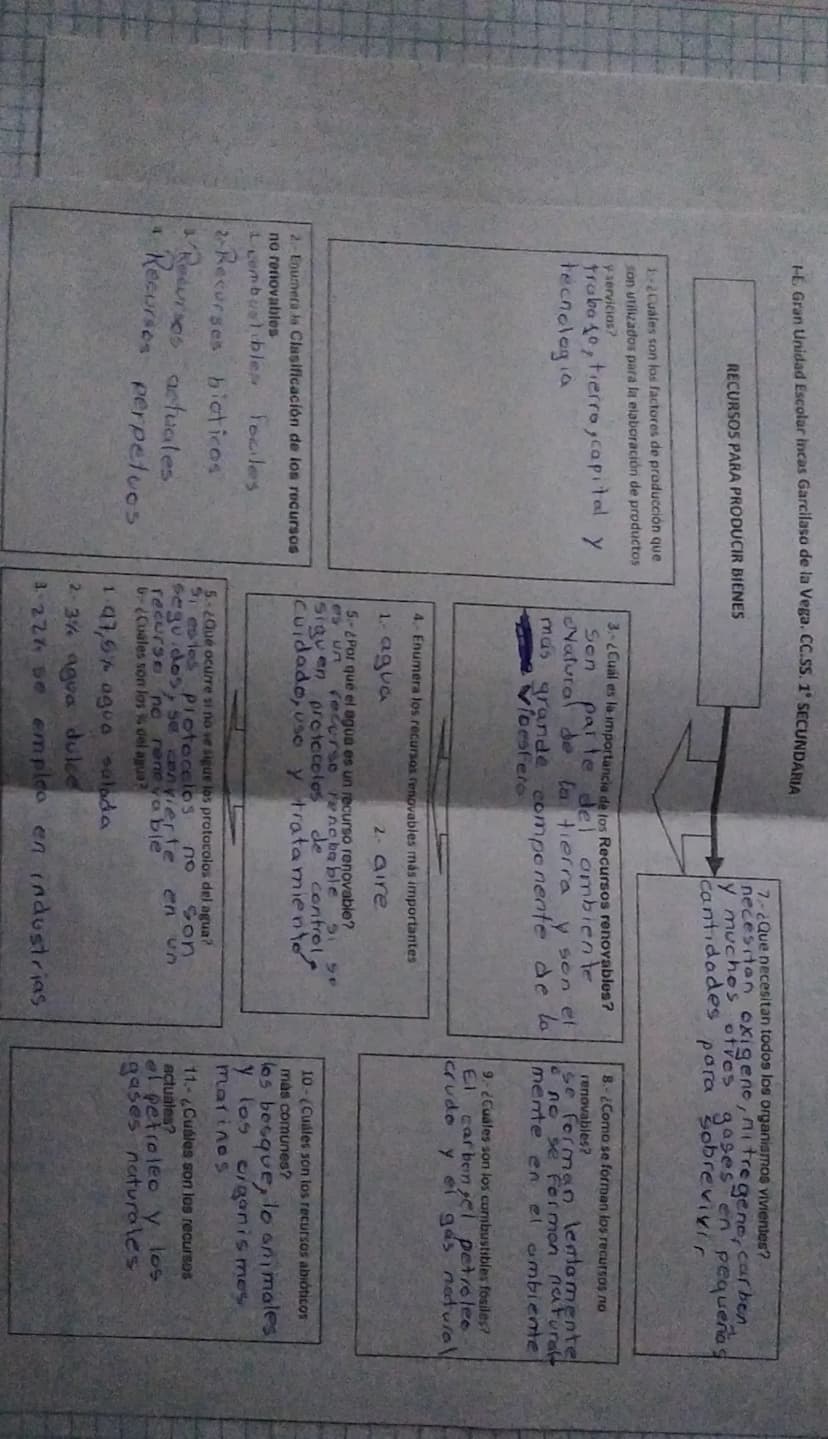 I.E. Gran Unidad Escolar Incas Garcilaso de la Vega. CC.SS. 1° SECUNDARIA
RECURSOS PARA PRODUCIR BIENES
1.- ¿Cuáles son los factores de producción que
son utilizados para la elaboración de productos
y servicios?
trabajo, tierra, capital y
tecnologia
2.- Enumera la Clasificación de los recursos
no renovables
1. combustibles fociles
2.- Recursos bioticos
3. Recursos actuales
4. Recursos perpetuos
3.- ¿Cuál es la importancia de los Recursos renovables?
Son parte del ambiente
Natural de la tierra y son el
más grande componente de la
Vioesfera
4.- Enumera los recursos renovables más importantes
1. agua 2. aire
5.- ¿Por qué el agua es un recurso renovable?
es un recurso renobable si se
siguen protocolos de control,
cuidado, uso y tratamiento
5.- ¿Qué ocurre si no se sigue los protocolos del agua?
Si estos protocolos no son
seguidos, se convierte en un
recurso no renovable
6.- ¿Cuáles son los % del agua?
1. 97,5% agua salada
2. 3% agua dulce
3. 22% se emplea en industrias
7.- ¿Que necesitan todos los organismos vivientes?
necesitan oxigeno, nitregeno, carbon
y muchos otros gases en pequeñas
cantidades para sobrevivir
8.- ¿Como se forman los recursos no
renovables?
se forman lentamente
o no se forman natural
mente en el ambiente
9.- ¿Cuáles son los combustibles fósiles?
El carbon, el petroleo
crudo y el gas natural
10.- ¿Cuáles son los recursos abióticos
más comunes?
los bosque, lo animales
y los organismos
marinos
11.- ¿Cuáles son los recursos
actuales?
el petroleo y los
gases naturales